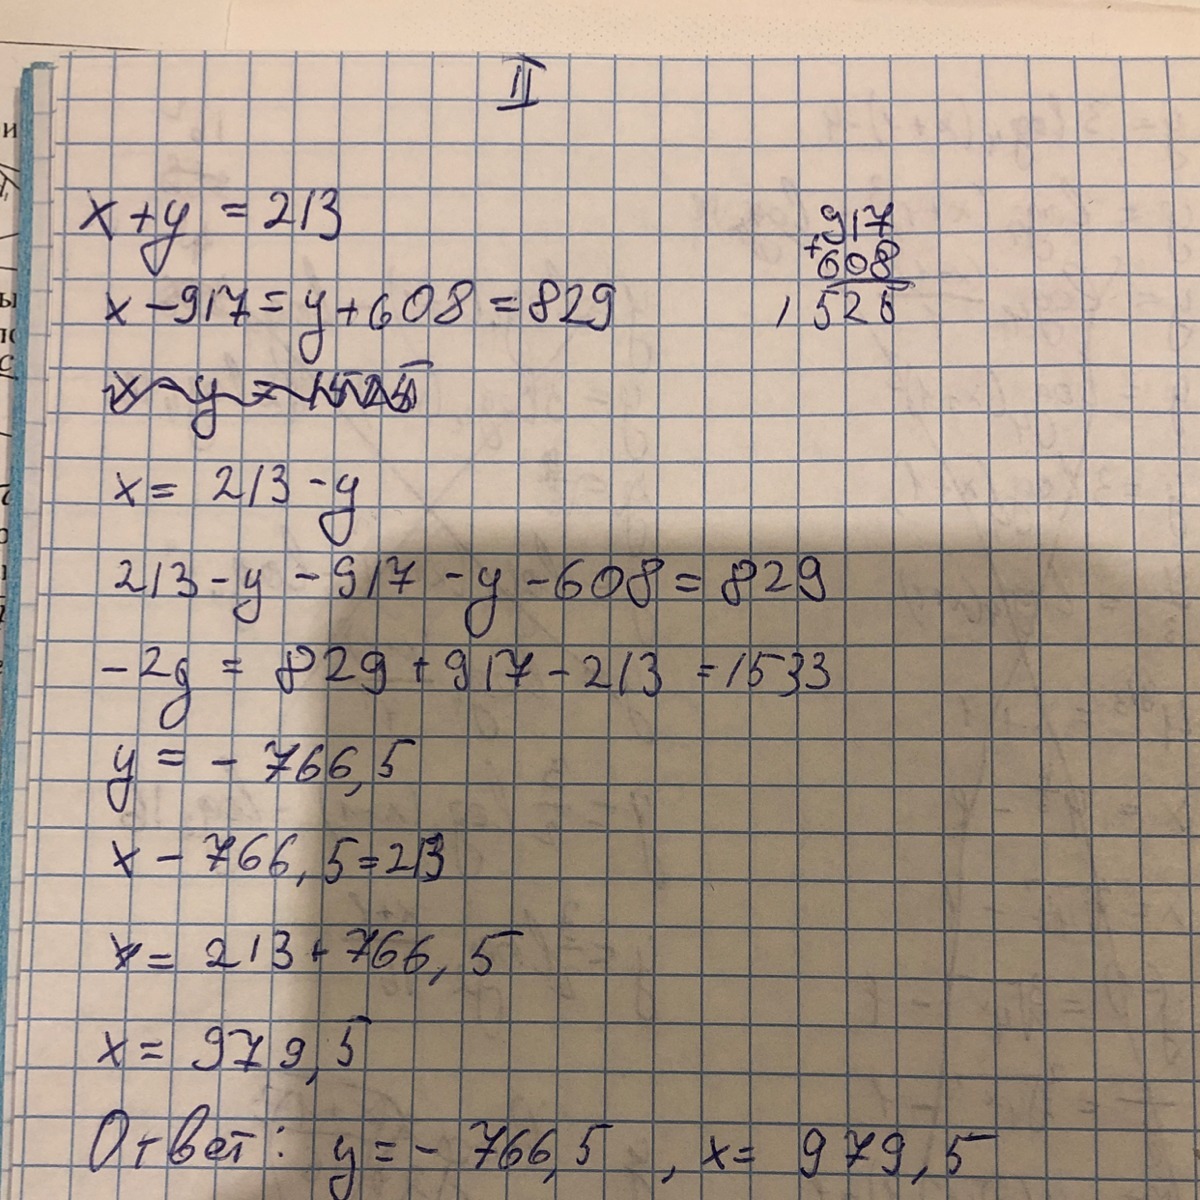 II
x + y = 213
x - 917 = y + 608 = 829
x = 213 - y
213 - y - 917 - y - 608 = 829
- 2y = 829 + 917 - 213 = 1533
y = - 766,5
x - 766,5 = 213
x = 213 + 766,5
x = 979,5
Ответ: y = - 766,5 , x = 979,5
917
+
608
1526